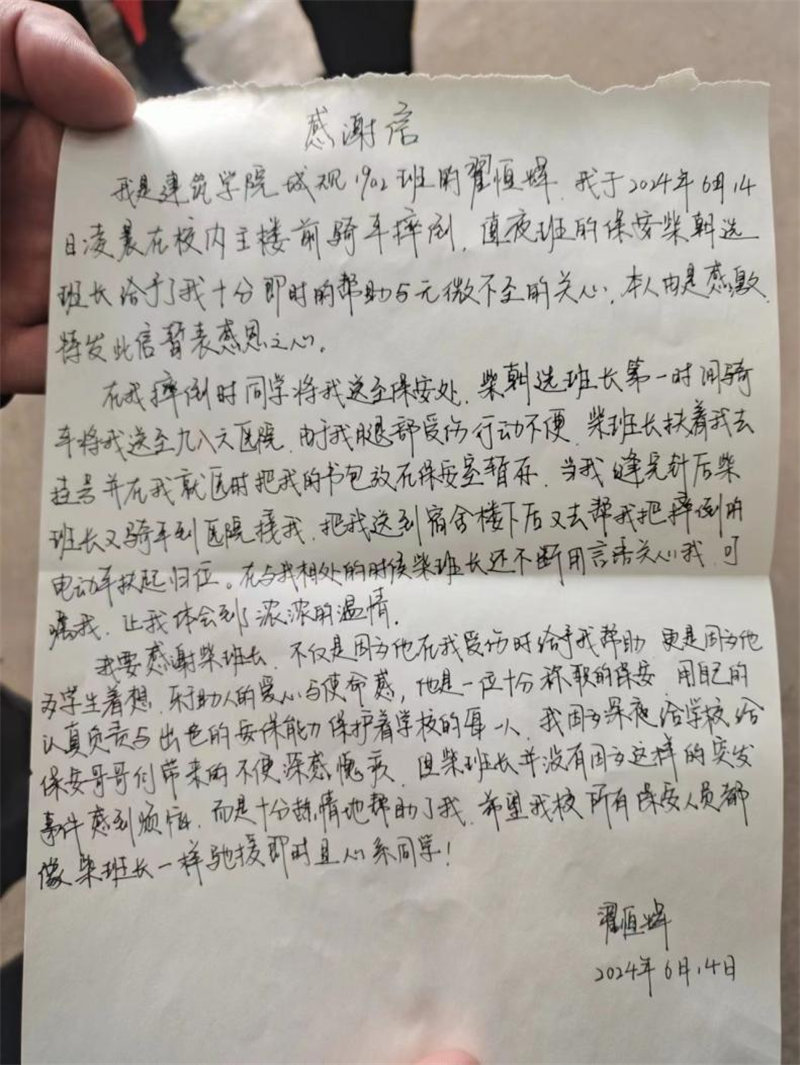 感谢信
我是建筑学院城规1902班的翟恒辉,我于2024年6月14
日凌晨在校内主楼前骑车摔倒,值夜班的保安柴朝选
班长给予了我十分即时的帮助与无微不至的关心,本人由是感激,
特发此信暂表感恩之心。
在我摔倒时同学将我送至保安处,柴朝选班长第一时间骑
车将我送至九八六医院,由于我腿部受伤行动不便,柴班长扶着我去
挂号并在我就医时把我的书包放在保安室暂存,当我缝完针后柴
班长又骑车到医院接我,把我送到宿舍楼下后又去帮我把摔倒的
电动车扶起归位。在与我相处的时候柴班长还不断用言语关心我,叮
嘱我,让我体会到了浓浓的温情.
我要感谢柴班长,不仅是因为他在我受伤时给予我帮助 更是因为他
为学生着想,乐于助人的爱心与使命感,他是一位十分称职的保安,用自己的
认真负责与出色的安保能力保护着学校的每一人,我因为深夜给学校给
保安哥哥们带来的不便深感愧疚,但柴班长并没有因为这样的突发
事件感到烦恼,而是十分热情地帮助了我,希望我校所有保安人员都
像柴班长一样驰援即时且心系同学!
翟恒辉
2024年6月14日